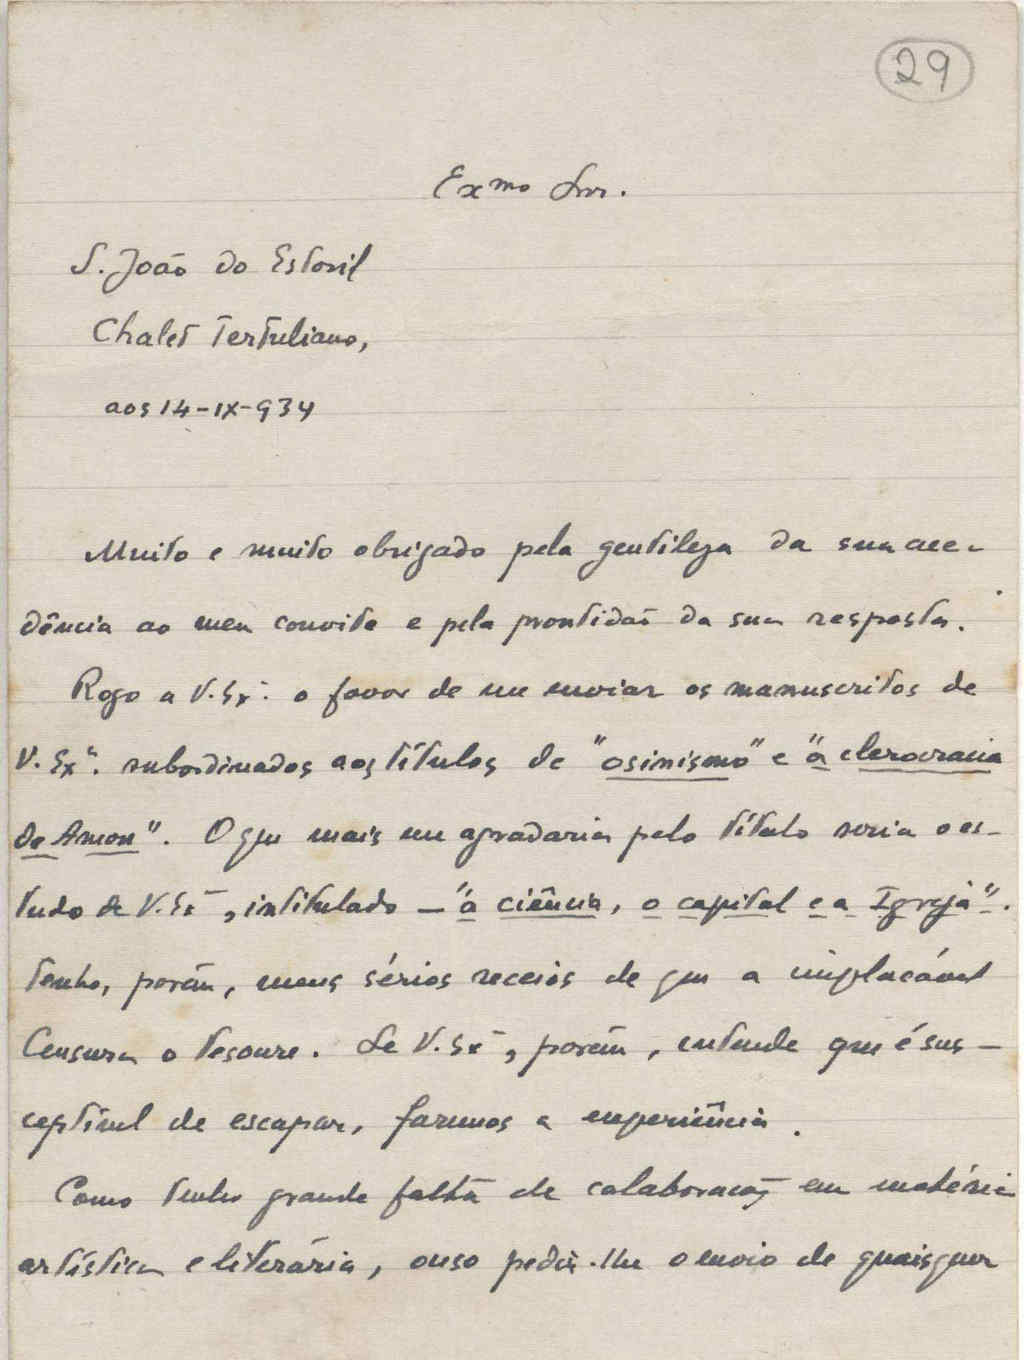 29
Exmo Snr.
S. João do Estoril
Chalet Tertuliano,
aos 14-IX-934
Muito e muito obrigado pela gentileza da sua ace-
dência ao meu convite e pela prontidão da sua resposta.
Rogo a V. Exª. o favor de me enviar os manuscritos de
V. Exª. subordinados aos títulos de "osirismo" e "a clerocracia
de Amon". O que mais me agradaria pelo título seria o es-
tudo de V. Exª, intitulado — "a ciência, o capital e a Igreja".
Tenho, porém, meus sérios receios de que a implacável
Censura o tesoure. Se V. Exª, porém, entende que é sus-
ceptível de escapar, faremos a experiência.
Como tenho grande falta de colaboração em matéria
artística e literária, ouso pedir-lhe o envio de quaisquer